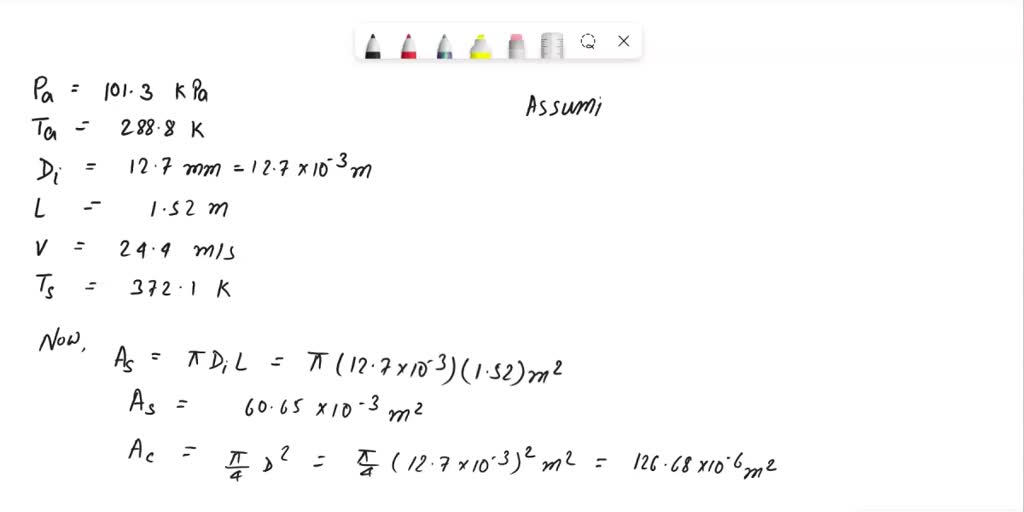 Pa = 101.3 KPa
Ta = 288.8 K
Di = 12.7 mm = 12.7 × 10^-3 m
L = 1.52 m
V = 24.4 m/s
Ts = 372.1 K
Assumi
Now,
As = π Di L = π (12.7 × 10^-3) (1.52) m^2
As = 60.65 × 10^-3 m^2
Ac = π/4 D^2 = π/4 (12.7 × 10^-3)^2 m^2 = 126.68 × 10^-6 m^2